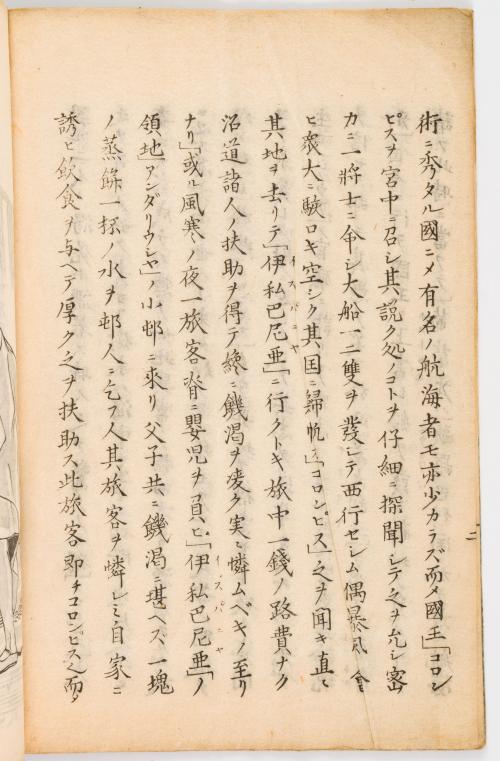 術ニ秀タル國ニメ有名ノ航海者モ亦少カラズ而メ國王「コロン
ピス」ヲ宮中ニ召シ其説ク処ノコトヲ仔細ニ探聞シテ之ヲ允シ密
カニ一將士ニ命シ大船一二雙ヲ發シテ西行セシム偶暴風ニ會
ヒ衆大ニ駭ロキ空シク其囯ニ歸帆ス「コロンピス」之ヲ聞キ直ニ
其地ヲ去リテ「伊私巴尼亜」ニ行クトキ旅中一錢ノ路費ナク
イスパニヤ
沿道諸人ノ扶助ヲ得テ纔ニ饑渇ヲ凌ク実ニ憐ムベキノ至リ
ナリ「或ル風寒ノ夜一旅客脊ニ嬰児ヲ負ヒ「伊私巴尼亜」ノ
イスパニヤ
領地「アンダリウシヤ」ノ小邨ニ來リ父子共ニ饑渇ニ堪ヘス一塊
ノ蒸餅一杯ノ水ヲ邨人ニ乞フ人其旅客ヲ憐レミ自家ニ
誘ヒ飲食ヲ与ヘテ厚ク之ヲ扶助ス此旅客即チコロンピス之而メ